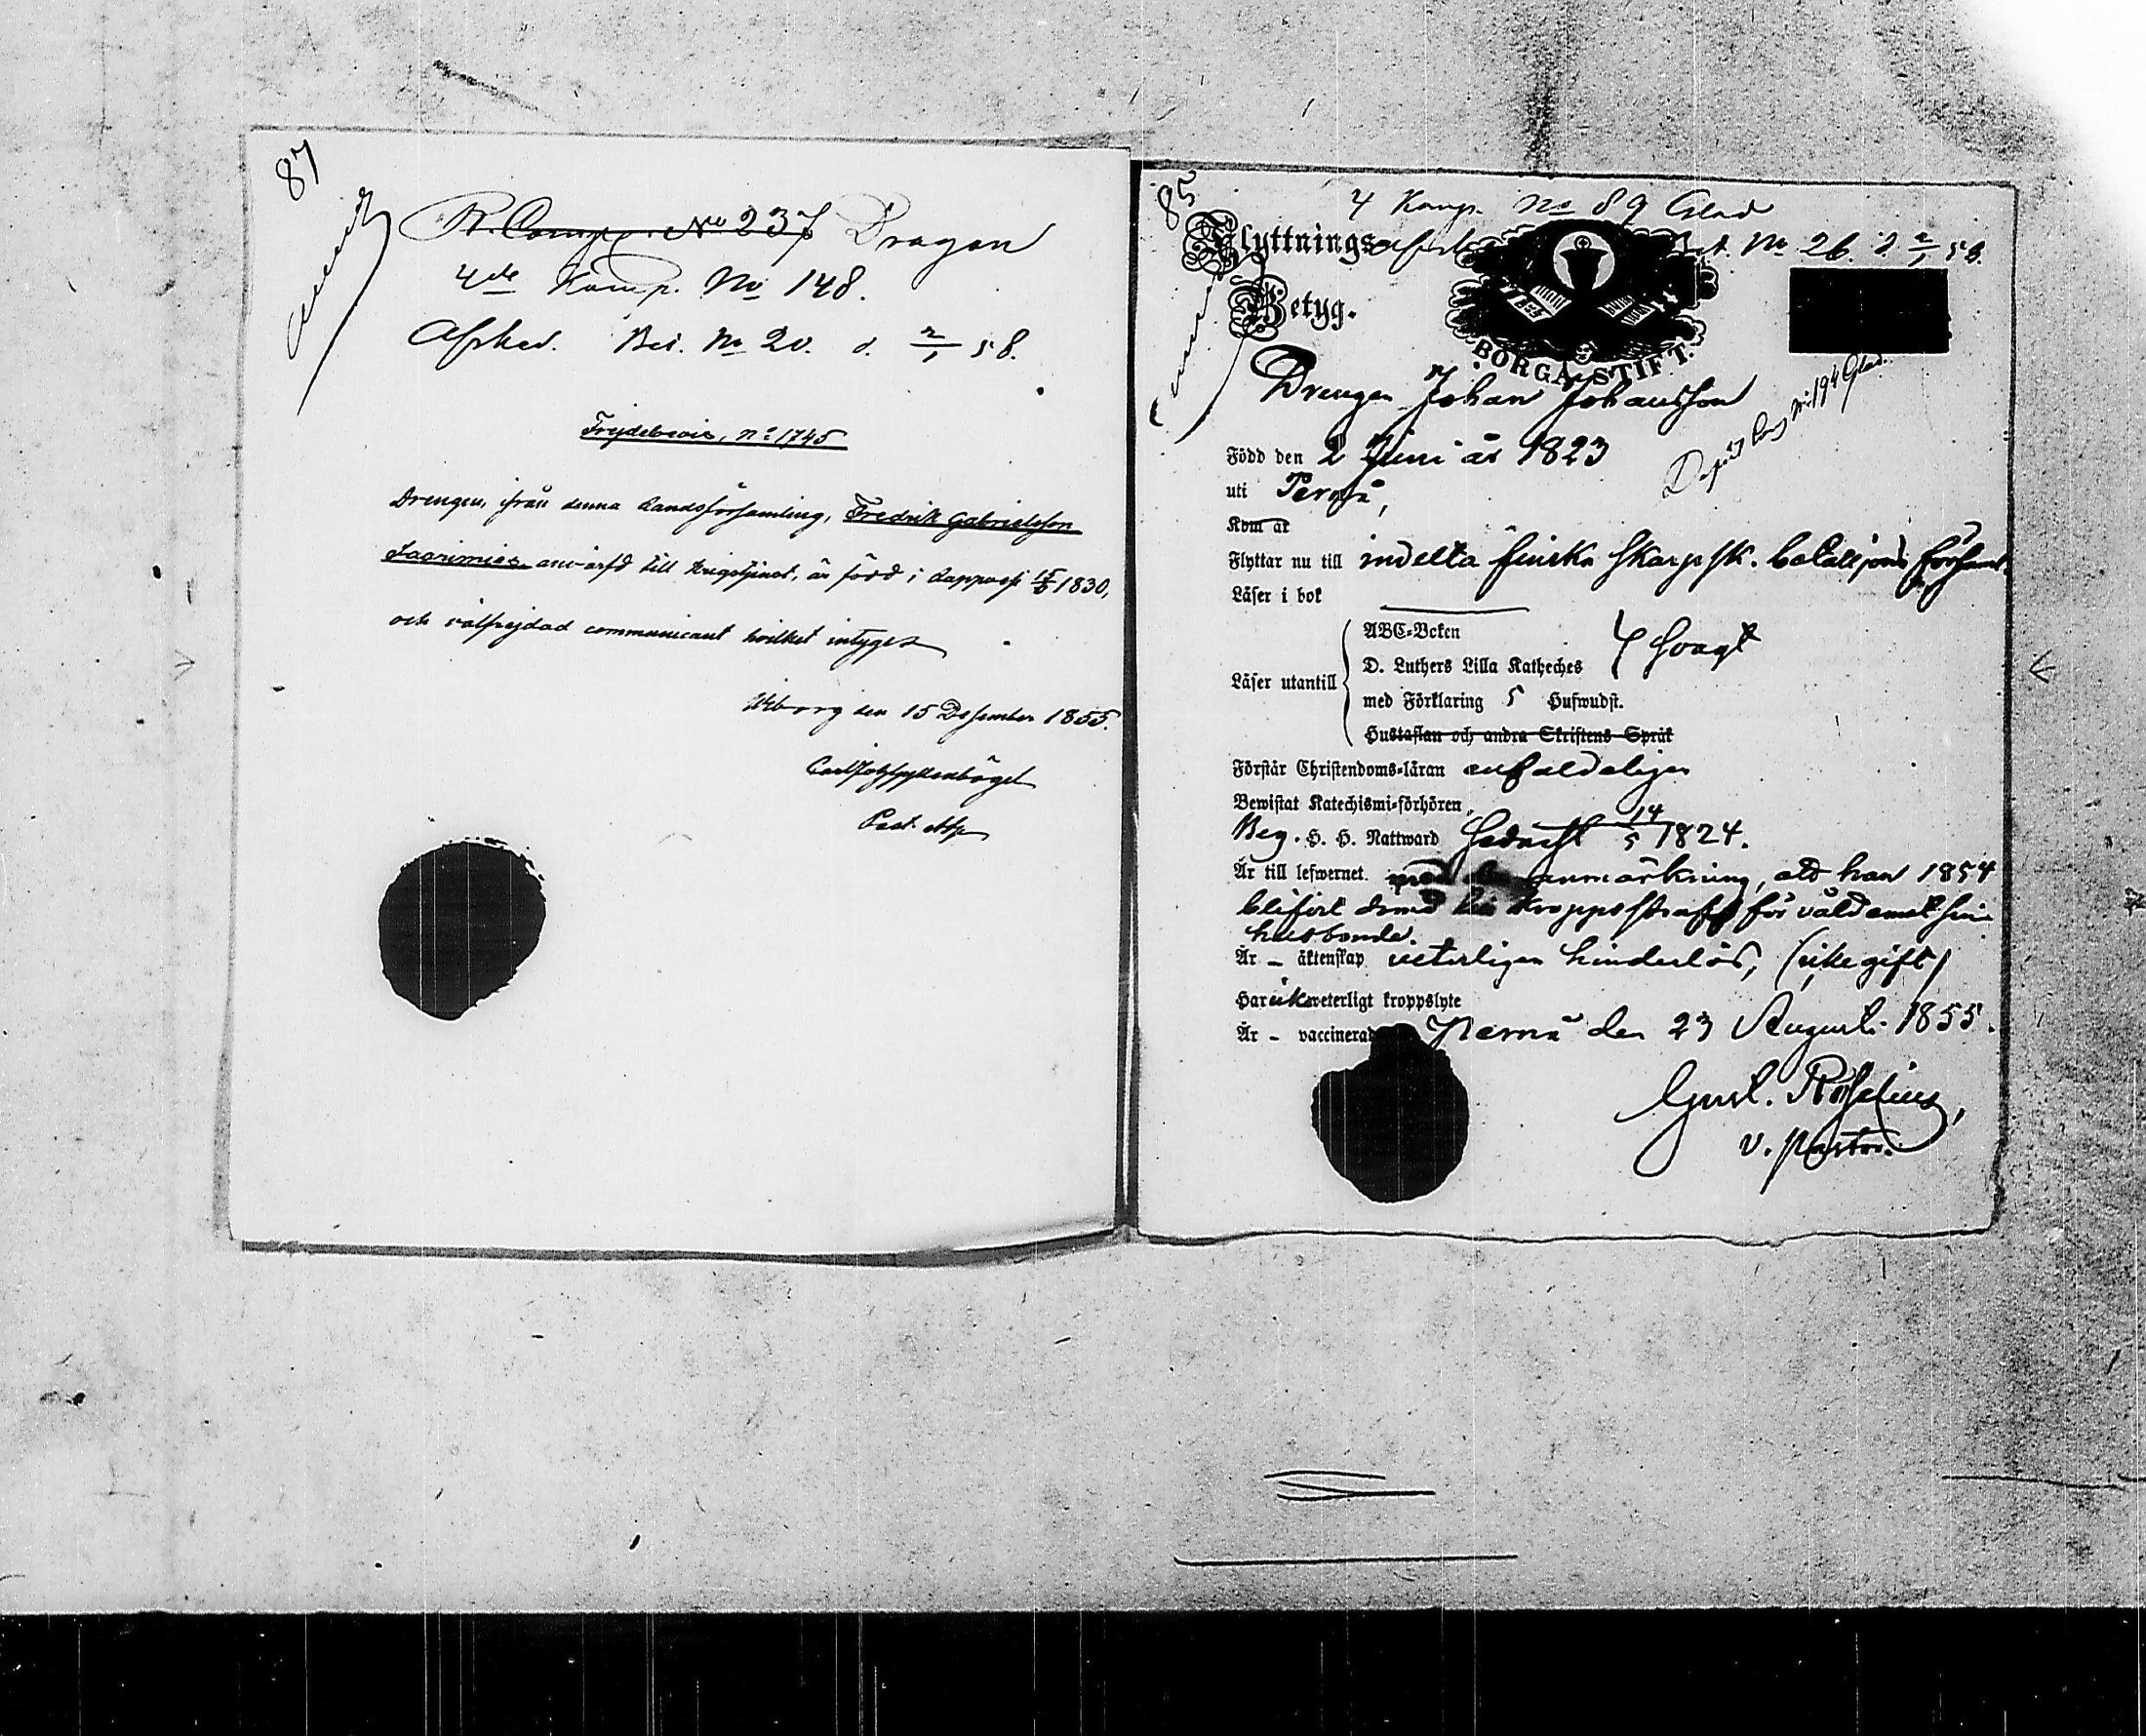 87
R. Comp. No 237 Dragon
4de Komp. No 148.
Afsked. Bei. No 20. d. 2/1 58.
Frejdebevis, No 1745
Drengen, ifrån denna Landsförsamling, Fredrik Gabrielsson
Jaorimies anvärfd till Krigstjenst, är född i Lappvesi 15/6 1830,
och välfrejdad communicant hvilket intygas
Wiborg den 15 December 1855.
Past.
85
4 Komp. No 89 Glad
Flyttnings- No 26. d 2/1 58.
Betyg.
BORGÅ STIFT.
Drengen Johan Johansson
No 194 Glad.
Född den 2 Juni år 1823
uti Pernå,
Kom år
Flyttar nu till indelta finska skarpsk. bataljons församl.
Läser i bok
ABC-Boken
D. Luthers Lilla Katheches svagt
Läser utantill
med Förklaring 5 Hufwudst.
Hustaflan och andra Skriftens Språk
Förstår Christendoms-läran enfaldeligen
Bewistat Katechismi-förhören
Beg. H. H. Nattward 14/5 1824.
Är till lefwernet. anmärkning, att han 1854
blifvit dömd till kroppsstraff för våld emot sin
husbonde.
Är - äktenskap veterligen hinderlös, (icke gift)
Har ick weterligt kroppslyte
Är - vaccinerad Pernå den 23 Augusti 1855.
Gust. Roselius,
v. pastor.